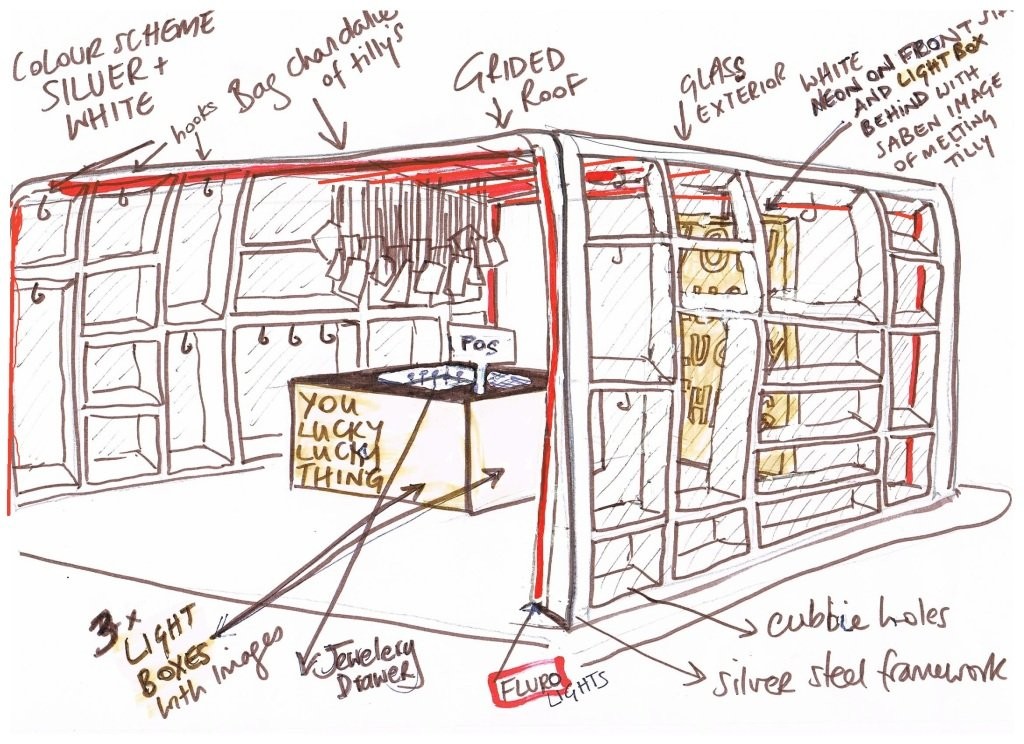 COLOUR SCHEME
SILVER +
WHITE
hooks
Bag chandalier
of tilly's
GRIDED
ROOF
GLASS
EXTERIOR
WHITE
NEON ON FRONT
AND LIGHTBOX
BEHIND WITH
SABEN IMAGE
OF MELTING
TILLY
POS
YOU
LUCKY
LUCKY
THING
YOU
LUCKY
3x
LIGHT
BOXES
with Images
Jewelery
Drawer
FLURO
LIGHTS
cubbie holes
silver steel framework